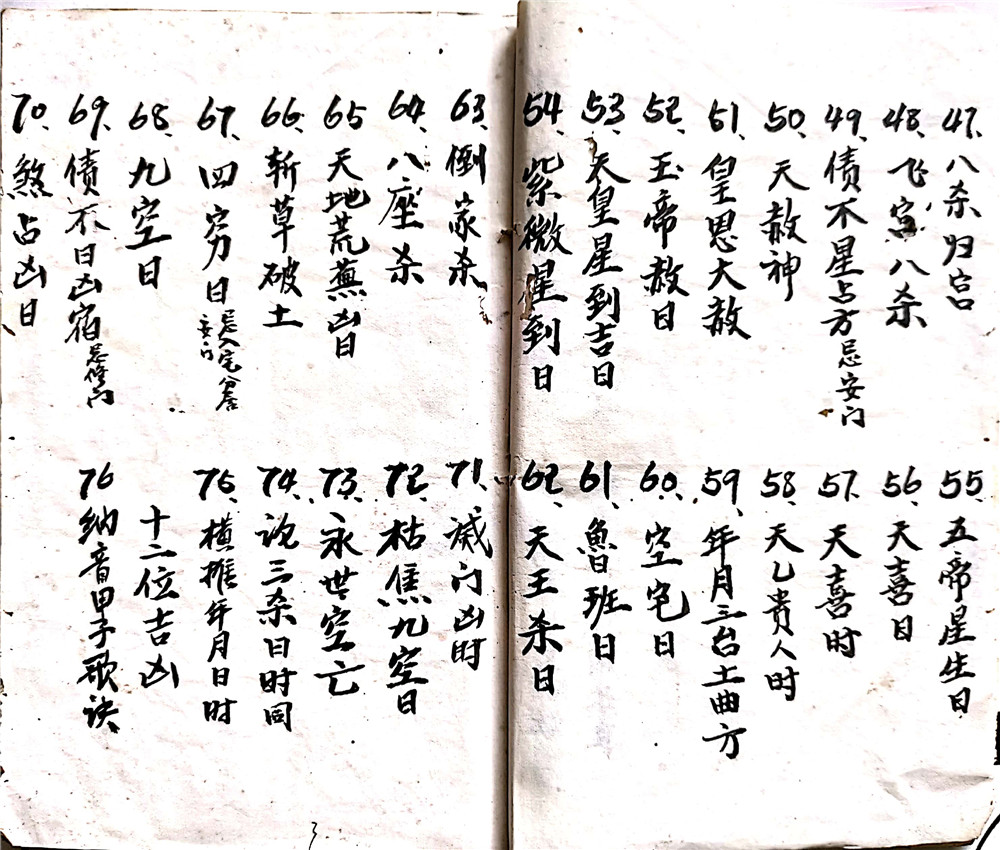 47、八杀归宫
48、飞宫八杀
49、债不星占方忌安门
50、天赦神
51、皇恩大赦
52、玉帝赦日
53、天皇星到吉日
54、紫微星到日
55、五帝星生日
56、天喜日
57、天喜时
58、天乙贵人时
59、年月三台土曲方
60、空宅日
61、鲁班日
62、天王杀日
63、倒家杀
64、八座杀
65、天地荒芜凶日
66、斩草破土
67、四穷日忌入宅分居安门
68、九空日
69、债不日凶宿忌修门
70、煞占凶日
71、灭门凶时
72、枯焦九空日
73、永世空亡
74、论三杀日时同
75、横推年月日时
十二位吉凶
76、纳音甲子歌诀
3